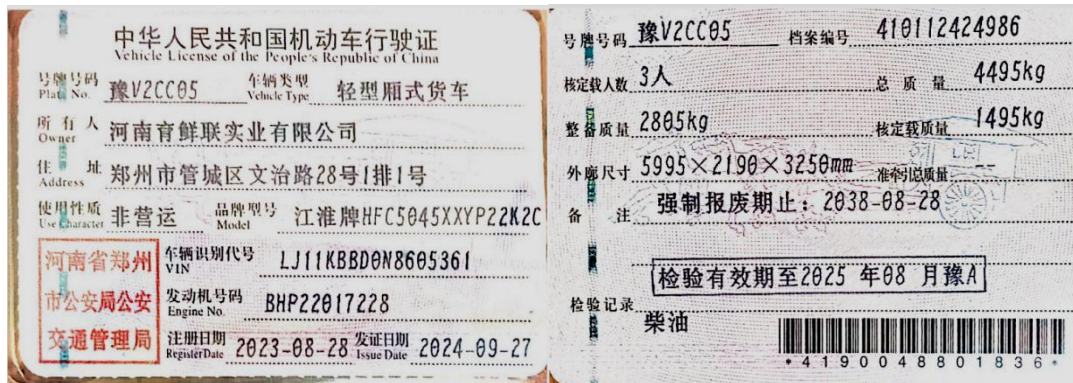 中华人民共和国机动车行驶证
Vehicle License of the People's Republic of China
号牌号码 Plate No. 豫V2CC05 车辆类型 Vehicle Type 轻型厢式货车
所有人 Owner 河南育鲜联实业有限公司
住址 Address 郑州市管城区文治路28号1排1号
使用性质 Use Character 非营运 品牌型号 Model 江淮牌HFC5045XXYP22K2C
河南省郑州
市公安局公安
交通管理局
车辆识别代号 VIN LJ11KBBD0N8605361
发动机号码 Engine No. BHP22017228
注册日期 Register Date 2023-08-28 发证日期 Issue Date 2024-09-27
号牌号码 豫V2CC05 档案编号 410112424986
核定载人数 3人 总质量 4495kg
整备质量 2805kg 核定载质量 1495kg
外廓尺寸 5995×2190×3250mm 准牵引总质量 --
备注 强制报废期止：2038-08-28
检验有效期至2025 年08 月豫A
检验记录
柴油
*4190048801836*